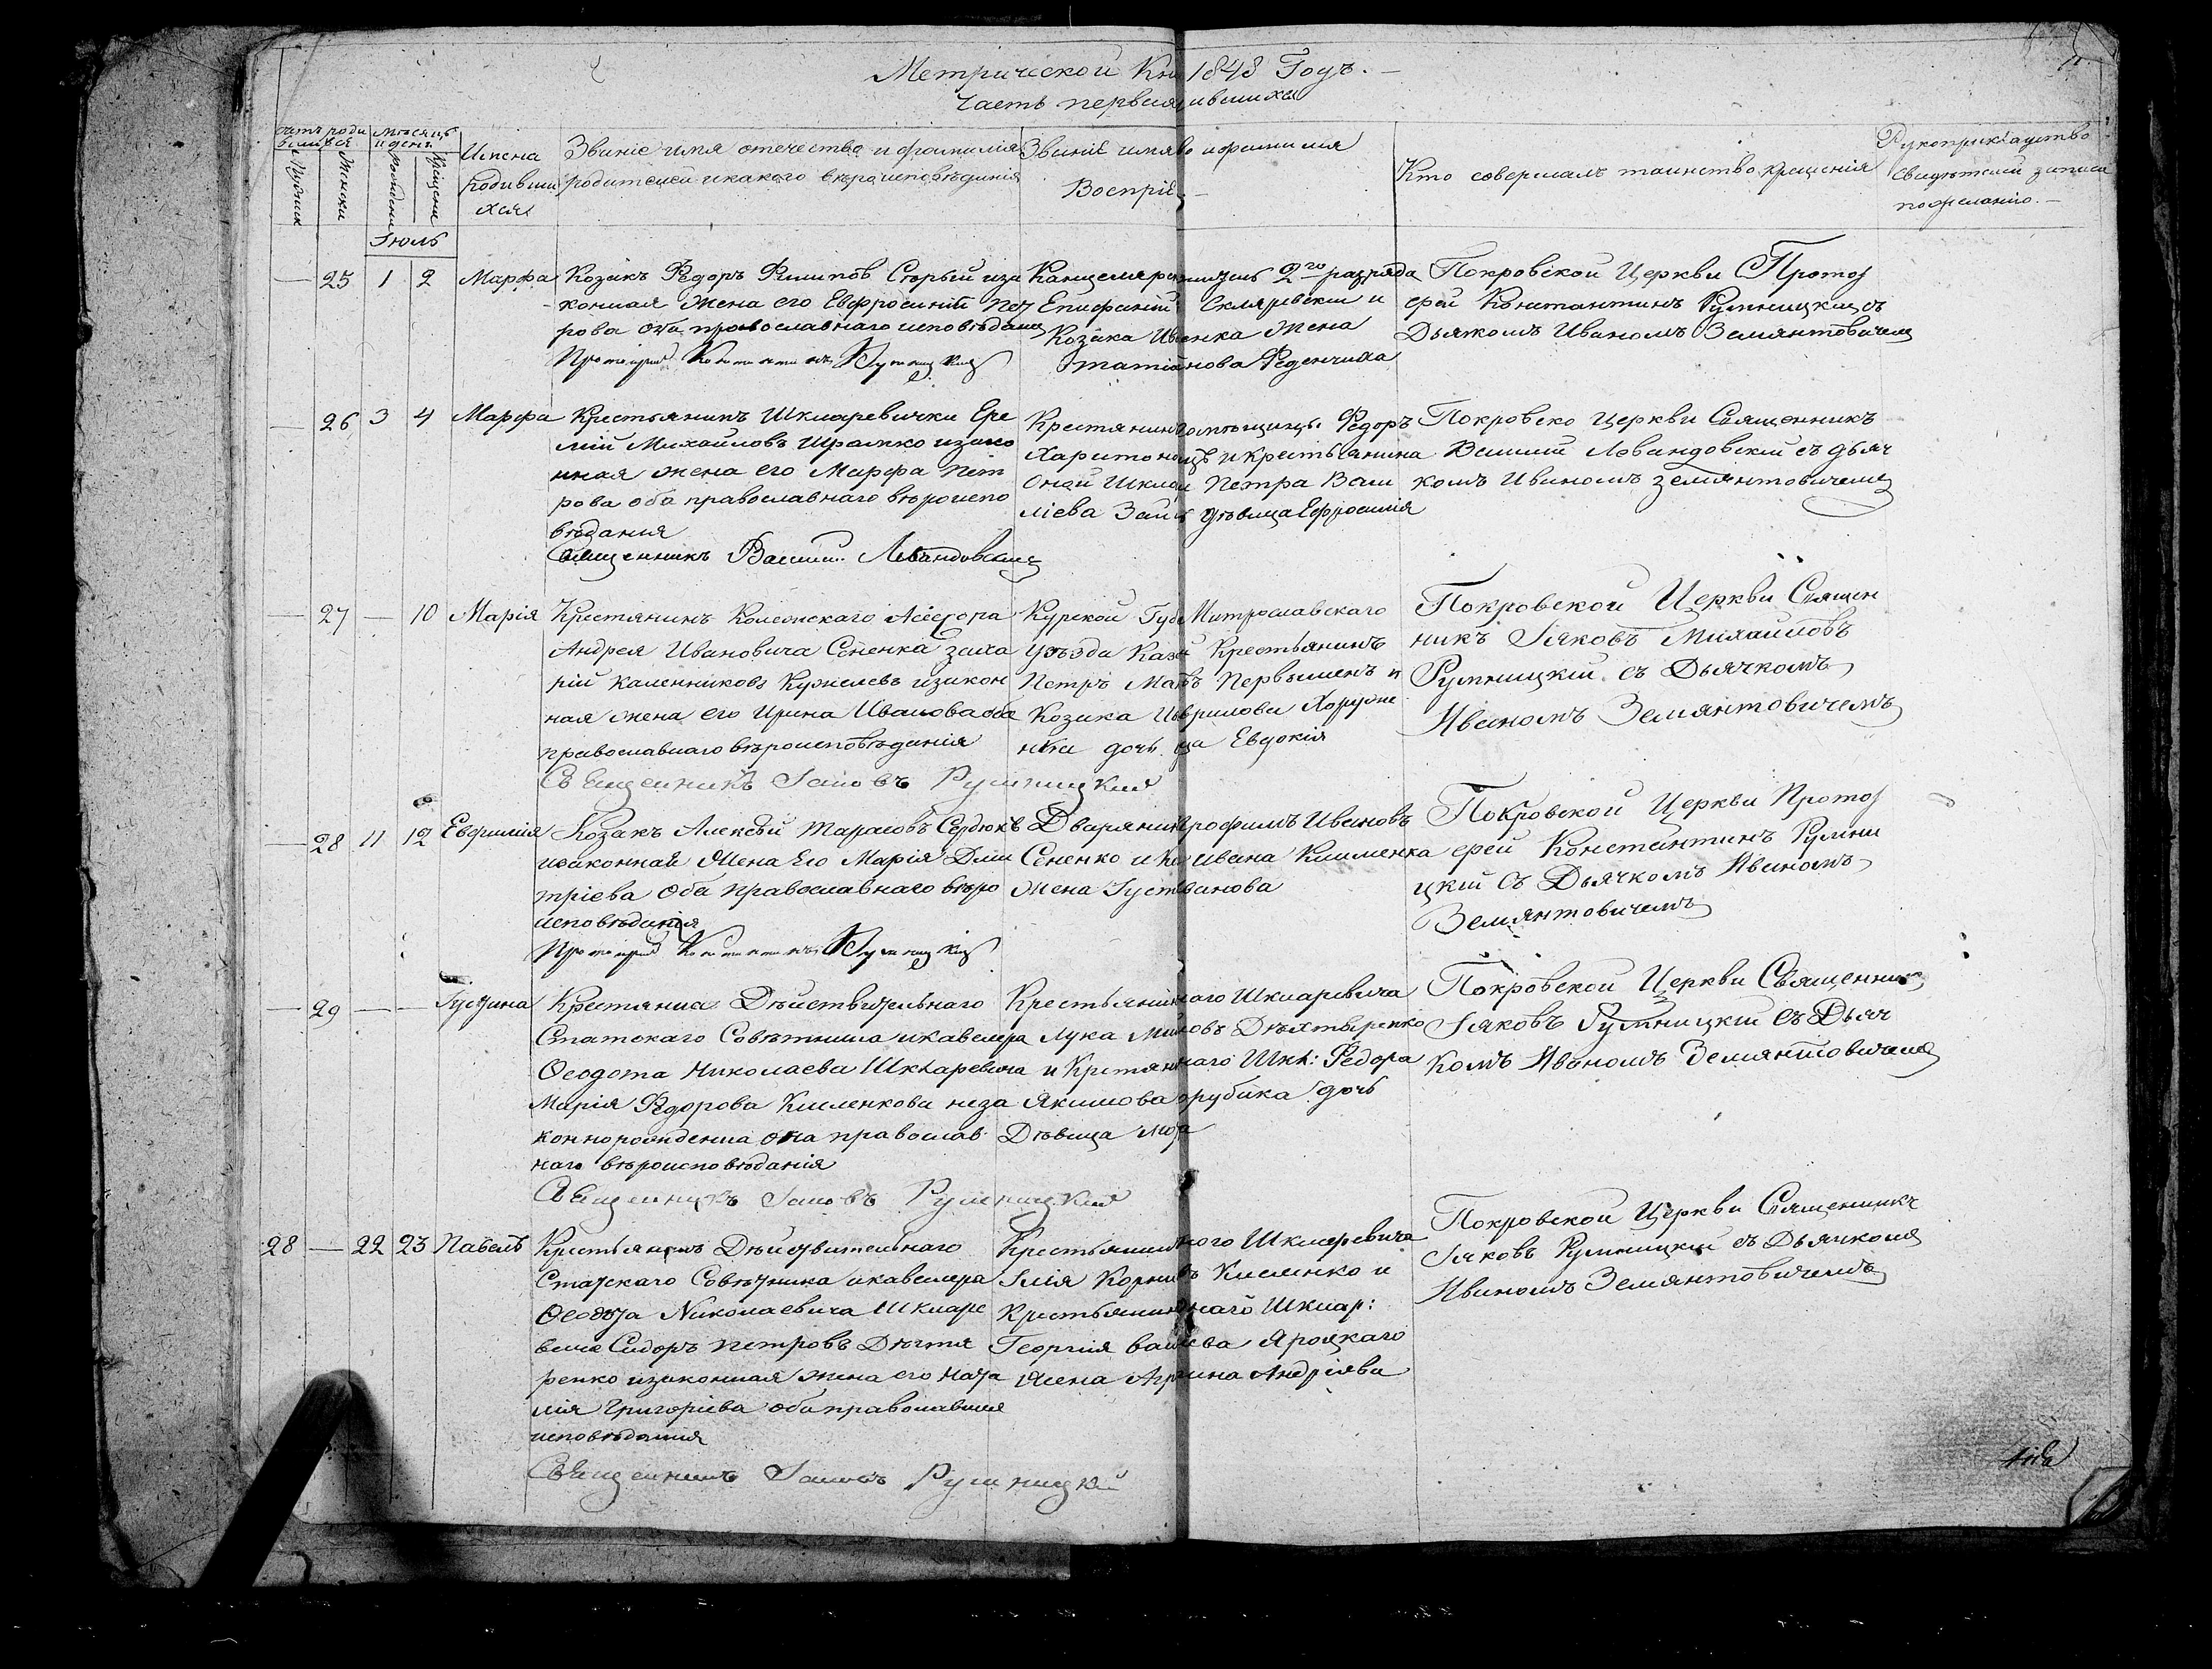 Метрической Кни 1848 Годъ. —
Часть первая ившихся
счетъ роди
вшихся
Мужеск
Женски
мѣсяцъ
и день
рожденія
крещенія
Имена
родивши
хся
Званіе имя отечество и фамилія
родителей и какого вѣроисповѣданія
Званіе имя во и фамилія
Воспріе —
Кто совершалъ таинство крещенія
Рукоприкладство
свидѣтелей записи
по желанію. —
Іюль
— 25 1 2 Марфа
Козакъ Ѳедоръ Филиповъ Старый иза
конная жена его Евфросинія Пет
рова оба православнаго исповѣданія
Протоіерей Константинъ Румницкій
Канцелярс житель 2го разряда
Епифаній Скляревскій и
Козака Ив енка жена
татіа нова Феденчиха
Покровской Церкви Протоі
ерей Константинъ Румницкій съ
Дьячкомъ Иваномъ Землнтовичемъ
— 26 3 4 Марфа
Крестьянинъ Шкляревички Ере
мій Михайловъ Ирамко изако
нная жена его Марфа Пет
рова оба православнаго вѣроиспо
вѣданія
Священникъ Василій Левандовскій
Крестянин помѣщицы Ѳедоръ
Харитоно и крестьянина
Оной Шкля Петра Васи
ліева Заи дѣвица Ефросинія
Покровско Церкви Священникъ
Василій Левандовскій съ дьяч
комъ Иваномъ Землнтовичемъ
— 27 — 10 Марія
Крестянинъ Колежскаго Асессора
Андрея Ивановича Сененка заха
рій Каленниковъ Кужелевъ изакон
ная жена его Ирина Иванова оба
православнаго вѣроисповѣданія
Священникъ Іаковъ Румницкій
Курской Губе Митрославскаго
Уѣзда Казе Крестьянинъ
Петръ Мат въ Первышенъ и
Козака Ив врилова Хоруже
нка дочь ца Евдокія
Покровской Церкви Священ
никъ Іаковъ Михаиловъ
Румницкій съ Дьячкомъ
Иваномъ Землнтовичемъ
— 28 11 12 Евфимія
Козакъ Алексѣй Тарасовъ Сердюкъ
изаконная жена Его Марія Дми
тріева Оба Православнаго вѣро
исповѣданія
Протоіерей Константинъ Румницкій
Дварянин рофимъ Ивановъ
Сененко и Ко Ивана Клименка
жена Густ ванова
Покровской Церкви Протоі
ерей Константинъ Румни
цкій Съ Дьячкомъ Иваномъ
Землнтовичемъ
— 29 — — Густина
Крестянка Дѣйствительнаго
Статскаго Совѣтника икавалера
Ѳеодота Николаева Шкляревича
Марія Ѳедорова Кисленкова неза
коннорожденна она православ
наго вѣроисповѣданія
Священникъ Іаковъ Румницкій
Крестьянин наго Шкляревича
Лука Ми ловъ Дѣхтяренко
и Крстян наго Шкл: Ѳедора
Якимова рубика дочь
Дѣвица
Покровской Церкви Священникъ
Іаковъ Румницкій съ Дьяч
комъ Иваномъ Землнтовичемъ
28 — 22 23 Павелъ
Крестьянинъ Дѣйствительнаго
Статскаго Совѣтника икавалера
Ѳеодота Николаевича Шкляре
вича Сидоръ Петровъ Дѣгтя
ренко изаконная жена его Ната
лія Григоріева оба православнаго
исповѣданія
Священникъ Іаковъ Румницкій
Крестьянин ного Шкляревича
Ілія Корни въ Кисленко и
Крестьянин наго Шкляр:
Георгія Васи ева Яроцкаго
жена Агр ина Андріява
Покровской Церкви Священникъ
Іаковъ Румницкій съ Дьячкомъ
Иваномъ Землнтовичемъ